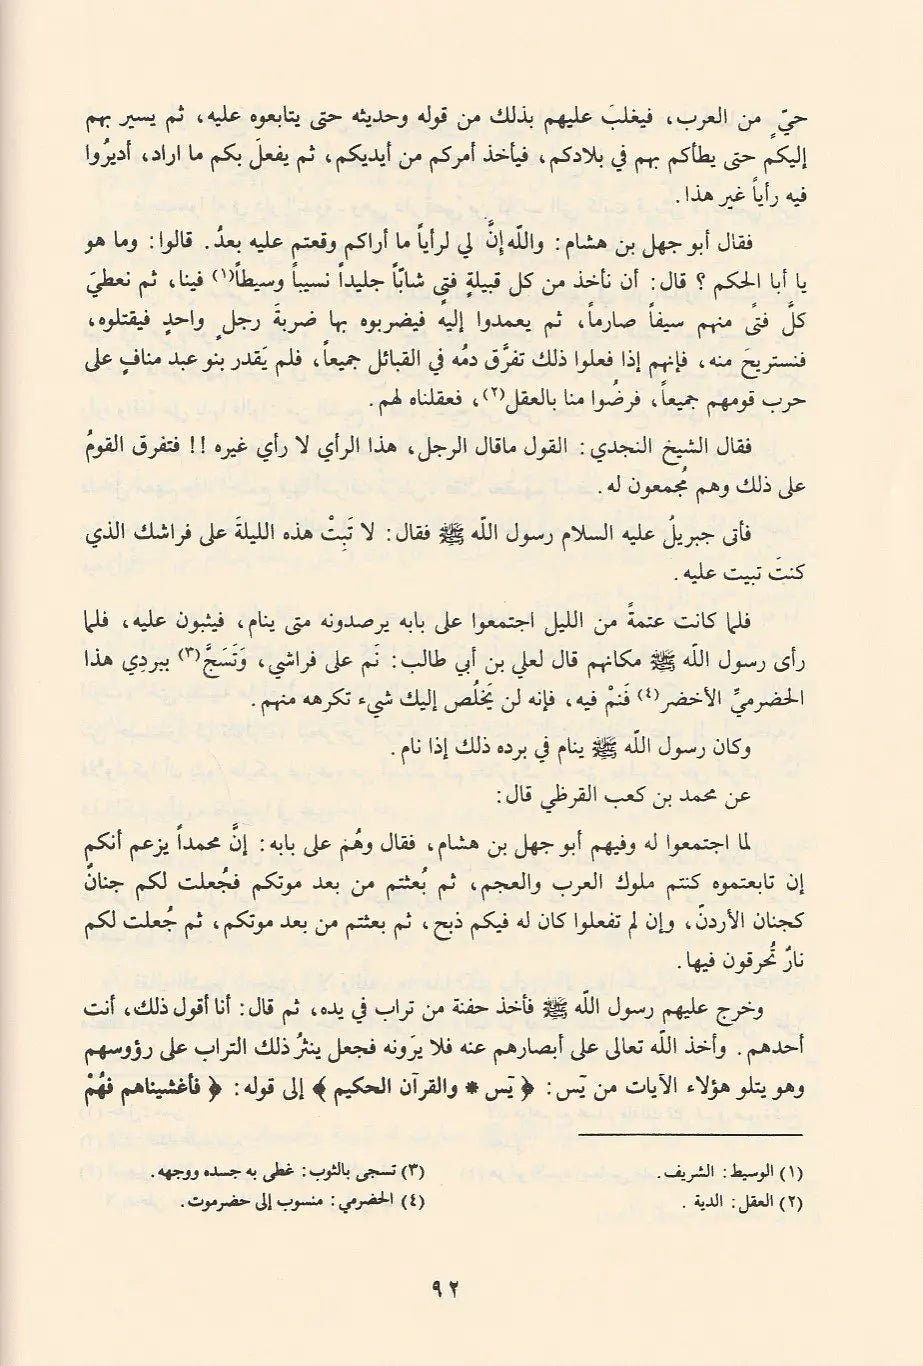 حيّ من العرب، فيغلبَ عليهم بذلك من قوله وحديثه حتى يتابعوه عليه، ثم يسير بهم
إليكم حتى يطأكم بهم في بلادكم، فيأخذ أمركم من أيديكم، ثم يفعلَ بكم ما اراد، أديرُوا
فيه رأياً غير هذا.
فقال أبو جهل بن هشام: واللّه إنَّ لي لرأياً ما أراكم وقعتم عليه بعدُ. قالوا: وما هو
يا أبا الحكم؟ قال: أن نأخذ من كل قبيلةٍ فتى شابّاً جليداً نسيباً وسيطاً(١) فينا، ثم نعطيَ
كلَّ فتىً منهم سيفاً صارماً، ثم يعمدوا إليه فيضربوه بها ضربةَ رجلٍ واحدٍ فيقتلوه،
فنستريحَ منه، فإنهم إذا فعلوا ذلك تفرَّق دمُه في القبائل جميعاً، فلم يَقدر بنو عبد منافٍ على
حرب قومهم جميعاً، فرضُوا منا بالعقل(٢)، فعقلناه لهم.
فقال الشيخ النجدي: القول ماقال الرجل، هذا الرأي لا رأي غيره!! فتفرق القومُ
على ذلك وهم مُجمعون له.
فأتى جبريلُ عليه السلام رسول اللّه ﷺ فقال: لا تَبِتْ هذه الليلةَ على فراشك الذي
كنتَ تبيت عليه.
فلما كانت عتمةً من الليل اجتمعوا على بابه يرصدونه متى ينام، فيثبون عليه، فلما
رأى رسول اللّه ﷺ مكانهم قال لعلي بن أبي طالب: نَم على فراشي، وَتَسَجَّ(٣) ببردِي هذا
الحضرميِّ الأخضر(٤) فَنمْ فيه، فإنه لن يَخلُص إليك شيء تكرهه منهم.
وكان رسول اللّه ﷺ ينام في برده ذلك إذا نام.
عن محمد بن كعب القرظي قال:
لما اجتمعوا له وفيهم أبو جهل بن هشام، فقال وهُم على بابه: إنَّ محمداً يزعم أنكم
إن تابعتموه كنتم ملوك العرب والعجم، ثم بُعثتم من بعد موتكم فجُعلت لكم جنانٌ
كجنان الأردنّ، وإن لم تفعلوا كان له فيكم ذبح، ثم بعثتم من بعد موتكم، ثم جُعلت لكم
نارٌ تُحرقون فيها.
وخرج عليهم رسول اللّه ﷺ فأخذ حفنة من تراب في يده، ثم قال: أنا أقول ذلك، أنت
أحدهم. وأخذ اللّه تعالى على أبصارهم عنه فلا يرَونه فجعل ينثرُ ذلك التراب على رؤوسهم
وهو يتلو هؤلاء الآيات من يٓس: ﴿ يٓس * والقرآن الحكيم ﴾ إلى قوله: ﴿ فأغشيناهم فَهُمْ
(١) الوسيط: الشريف.
(٢) العقل: الدية.
(٣) تسجى بالثوب: غطى به جسده ووجهه.
(٤) الحضرمي: منسوب إلى حضرموت.
٩٢